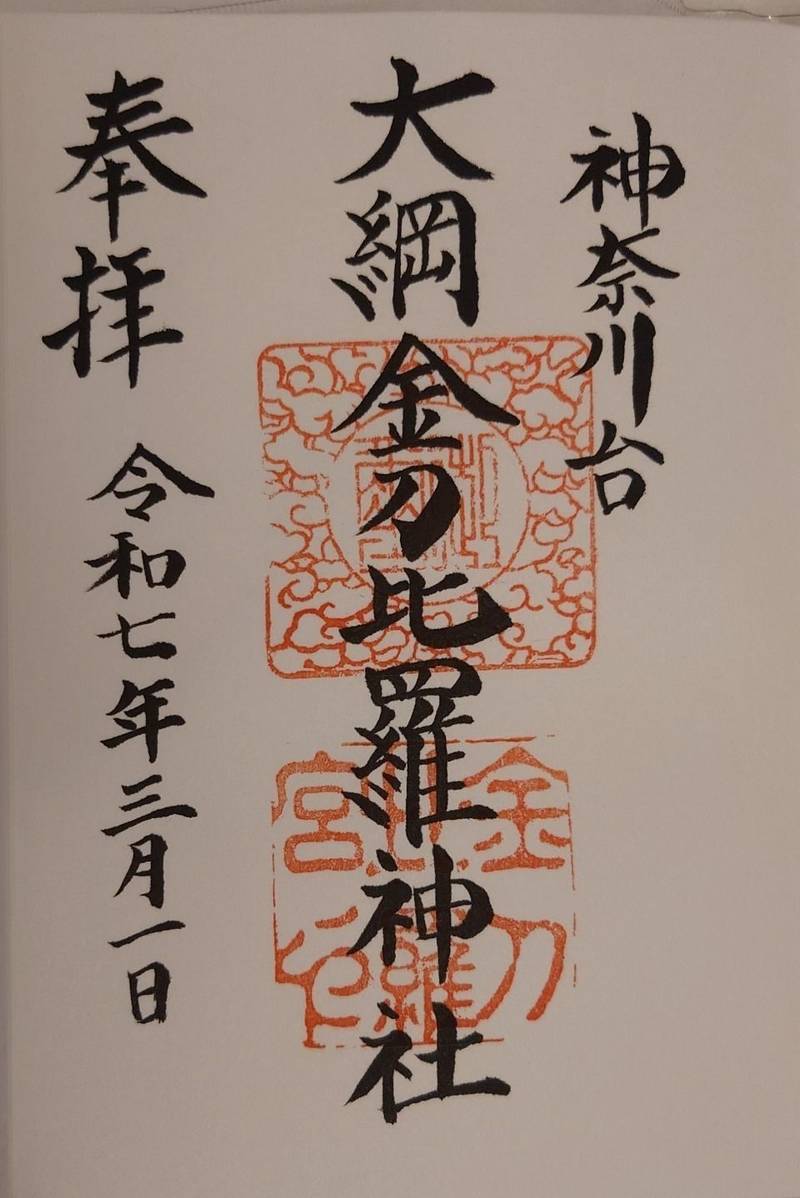 神奈川台
大綱金刀比羅神社
奉拝
令和七年三月一日